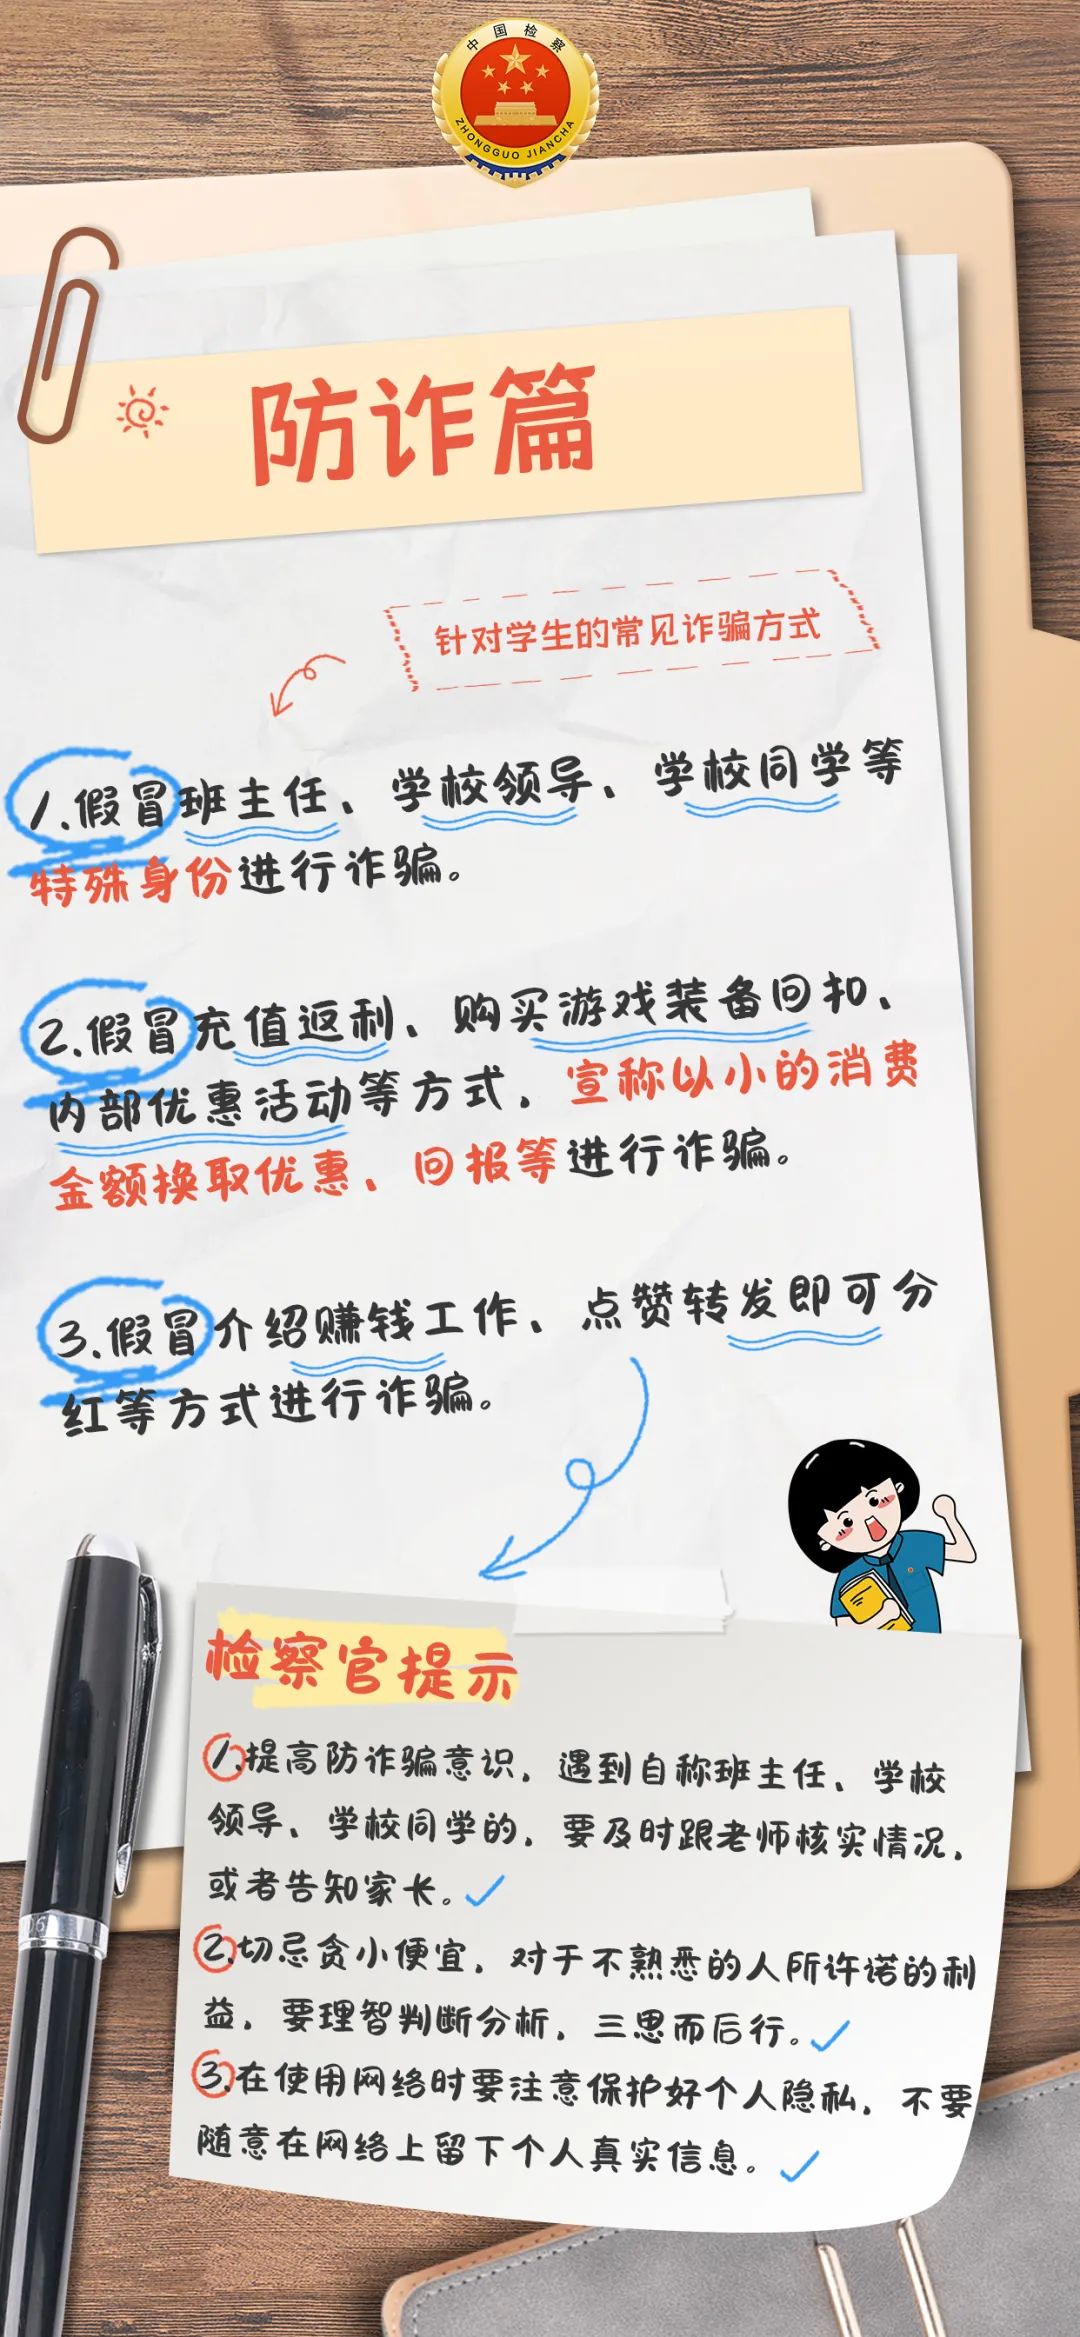 中国检察
ZHONGGUO JIANCHA
防诈篇
针对学生的常见诈骗方式
1.假冒班主任、学校领导、学校同学等
特殊身份进行诈骗。
2.假冒充值返利、购买游戏装备回扣、
内部优惠活动等方式，宣称以小的消费
金额换取优惠、回报等进行诈骗。
3.假冒介绍赚钱工作、点赞转发即可分
红等方式进行诈骗。
检察官提示
1.提高防诈骗意识，遇到自称班主任、学校
领导、学校同学的，要及时跟老师核实情况，
或者告知家长。
2.切忌贪小便宜，对于不熟悉的人所许诺的利
益，要理智判断分析，三思而后行。
3.在使用网络时要注意保护好个人隐私，不要
随意在网络上留下个人真实信息。